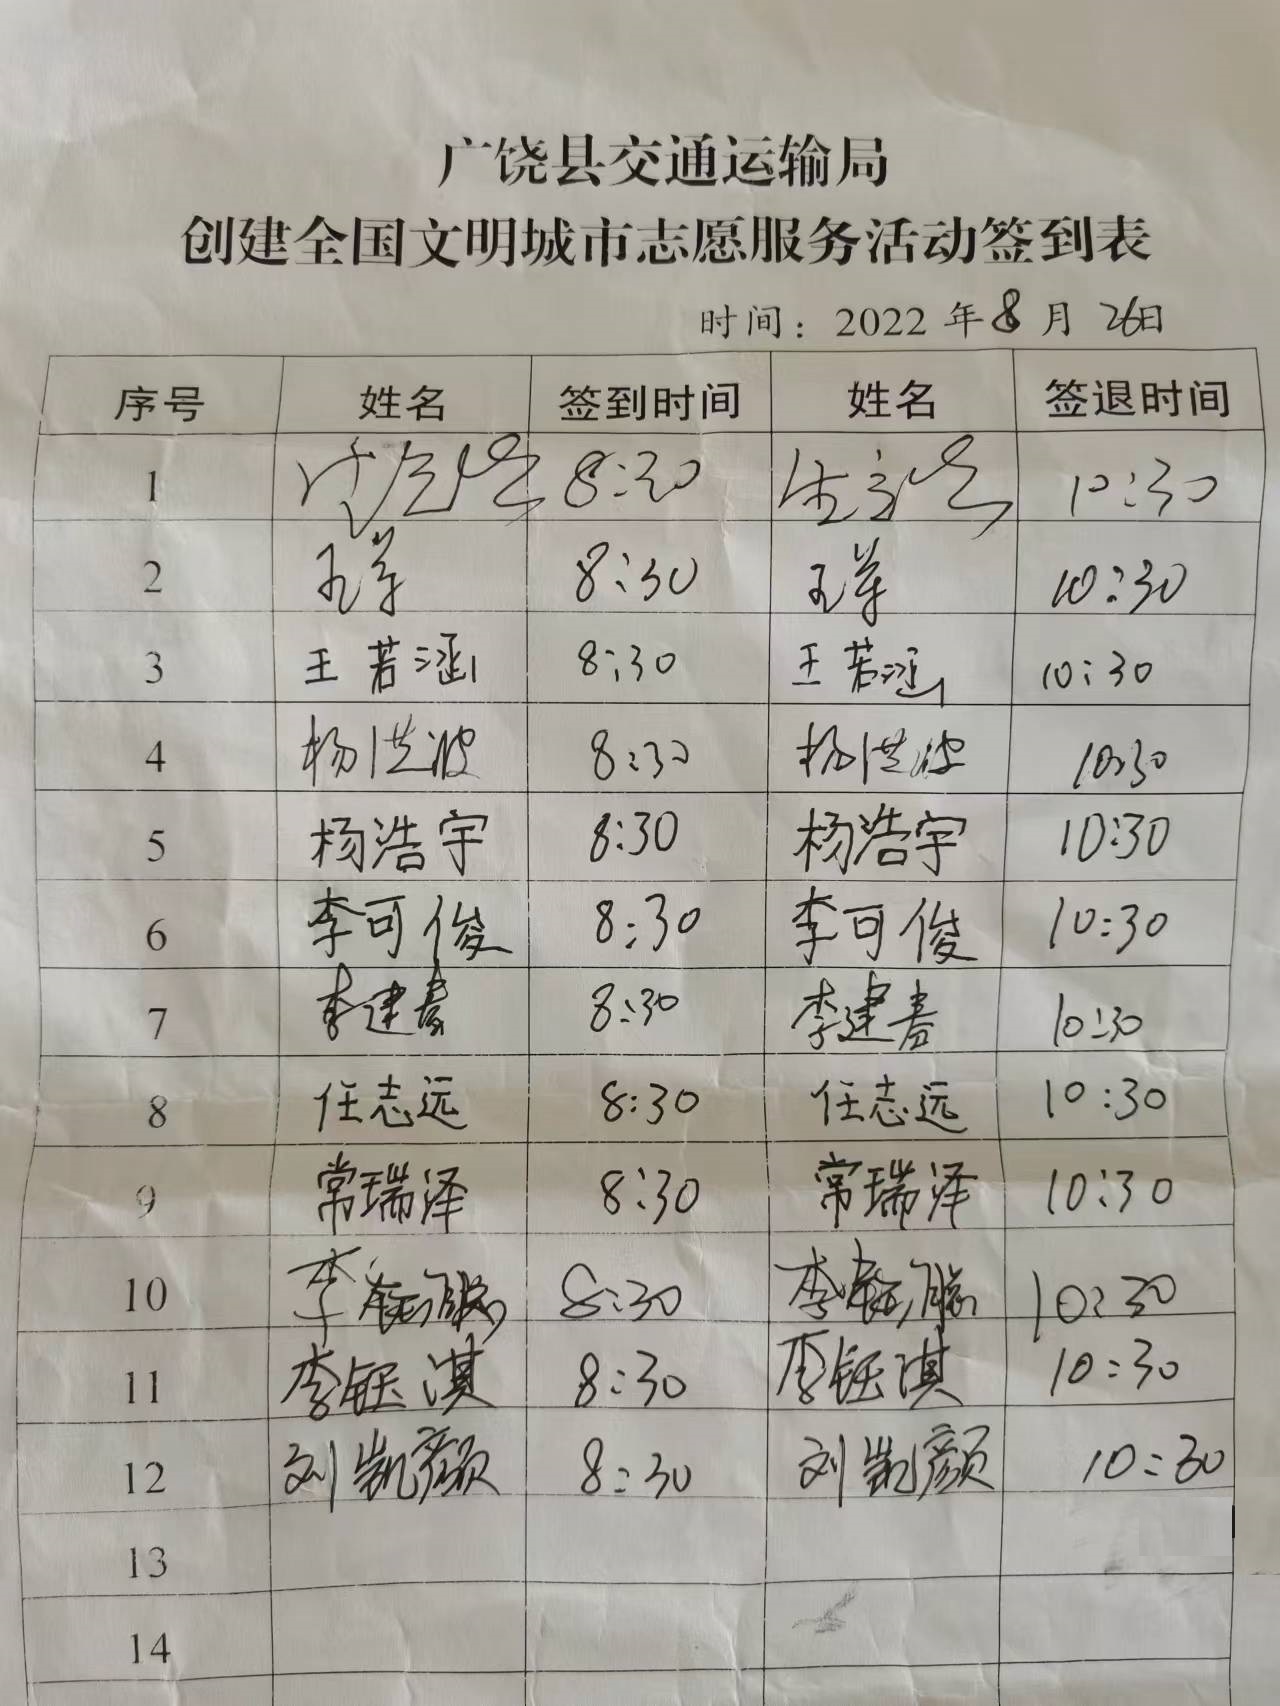 广饶县交通运输局
创建全国文明城市志愿服务活动签到表
时间：2022 年 8 月 26日
序号 姓名 签到时间 姓名 签退时间
1 8:30 10:30
2 8:30 10:30
3 王若涵 8:30 王若涵 10:30
4 杨洪波 8:30 杨洪波 10:30
5 杨浩宇 8:30 杨浩宇 10:30
6 李可俊 8:30 李可俊 10:30
7 李建春 8:30 李建春 10:30
8 任志远 8:30 任志远 10:30
9 常瑞泽 8:30 常瑞泽 10:30
10 李 8:30 李 10:30
11 李钰淇 8:30 李钰淇 10:30
12 刘凯颜 8:30 刘凯颜 10:30
13
14